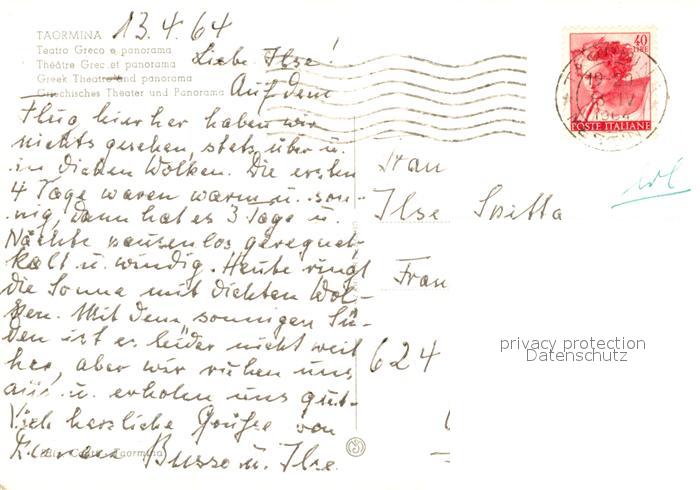 13.4.64
TAORMINA
Teatro Greco e panorama
Théâtre Grec et panorama
Greek Theatre and panorama
Griechisches Theater und Panorama
Liebe Ilse!
Auf dem
Flug hierher haben wir
nichts gesehen, stets über u.
in dicken Wolken. Die ersten
4 Tage waren warm u. son-
nig, dann hat es 3 Tage u.
Nächte pausenlos geregnet,
kalt u. windig. Heute ringt
die Sonne mit dichten Wol-
ken. Mit dem sonnigen Sü-
den ist es leider nicht weit
her, aber wir ruhen uns
aus u. erholen uns gut.
Dich herzliche Grüße von
Busso u. Ilse.
Taormina
40
LIRE
POSTE ITALIANE
Frau
Ilse Spitta
Fran
624
privacy protection
Datenschutz